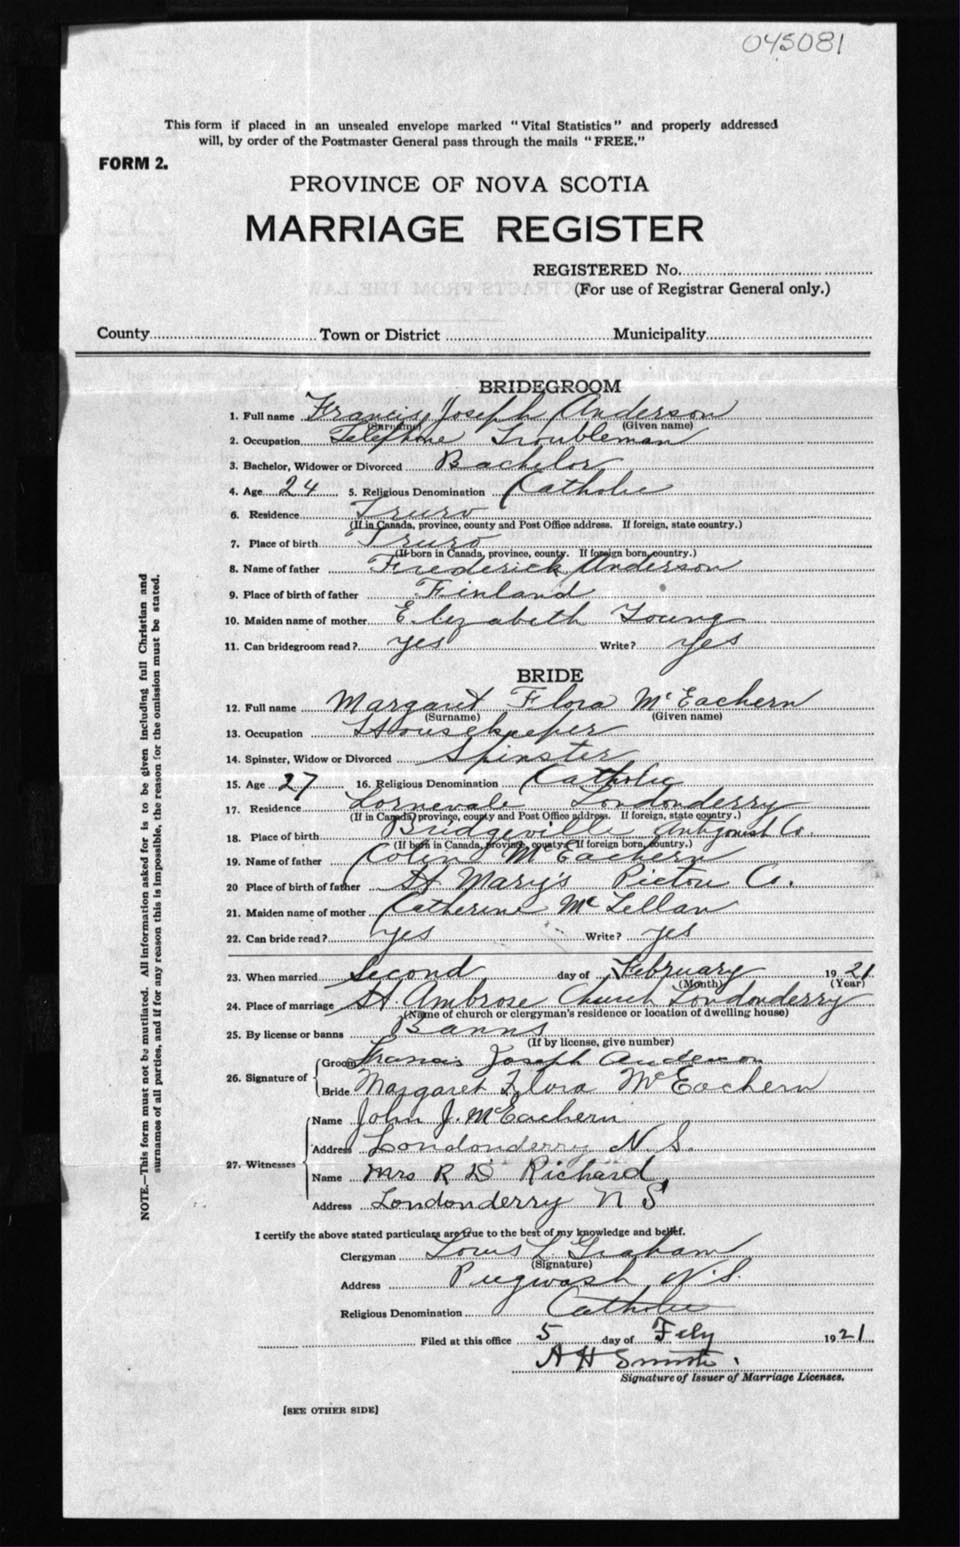 045081
This form if placed in an unsealed envelope marked "Vital Statistics" and properly addressed
will, by order of the Postmaster General pass through the mails "FREE."
FORM 2.
PROVINCE OF NOVA SCOTIA
MARRIAGE REGISTER
REGISTERED No.
(For use of Registrar General only.)
County Town or District Municipality
BRIDEGROOM
1. Full name Francis Joseph Anderson
(Surname) (Given name)
2. Occupation Telephone Troubleman
3. Bachelor, Widower or Divorced Bachelor
4. Age 24 5. Religious Denomination Catholic
6. Residence Truro
(If in Canada, province, county and Post Office address. If foreign, state country.)
7. Place of birth Truro
(If born in Canada, province, county. If foreign born, country.)
8. Name of father Frederick Anderson
9. Place of birth of father Finland
10. Maiden name of mother Elizabeth Young
11. Can bridegroom read? yes Write? yes
BRIDE
12. Full name Margaret Flora McEachern
(Surname) (Given name)
13. Occupation Housekeeper
14. Spinster, Widow or Divorced Spinster
15. Age 27 16. Religious Denomination Catholic
17. Residence Lornevale Londonderry
(If in Canada, province, county and Post Office address. If foreign, state country.)
18. Place of birth Bridgeville Antigonish Co.
(If born in Canada, province, county. If foreign born, country.)
19. Name of father Colin McEachern
20 Place of birth of father St Mary's Pictou Co.
21. Maiden name of mother Catherine McLellan
22. Can bride read? yes Write? yes
23. When married Second day of February 1921
(Month) (Year)
24. Place of marriage St. Ambrose Church Londonderry
(Name of church or clergyman's residence or location of dwelling house)
25. By license or banns Banns
(If by license, give number)
26. Signature of Groom Francis Joseph Anderson
Bride Margaret Flora McEachern
27. Witnesses Name John J. McEachern
Address Londonderry N.S.
Name Mrs R D Richard
Address Londonderry N S
I certify the above stated particulars are true to the best of my knowledge and belief.
Clergyman Louis L. Graham
(Signature)
Address Pugwash, N.S.
Religious Denomination Catholic
Filed at this office 5 day of Feby 1921
A H Smith.
Signature of Issuer of Marriage Licenses.
[SEE OTHER SIDE]
NOTE.—This form must not be mutilated. All information asked for is to be given including full Christian and
surnames of all parties, and if for any reason this is impossible, the reason for the omission must be stated.